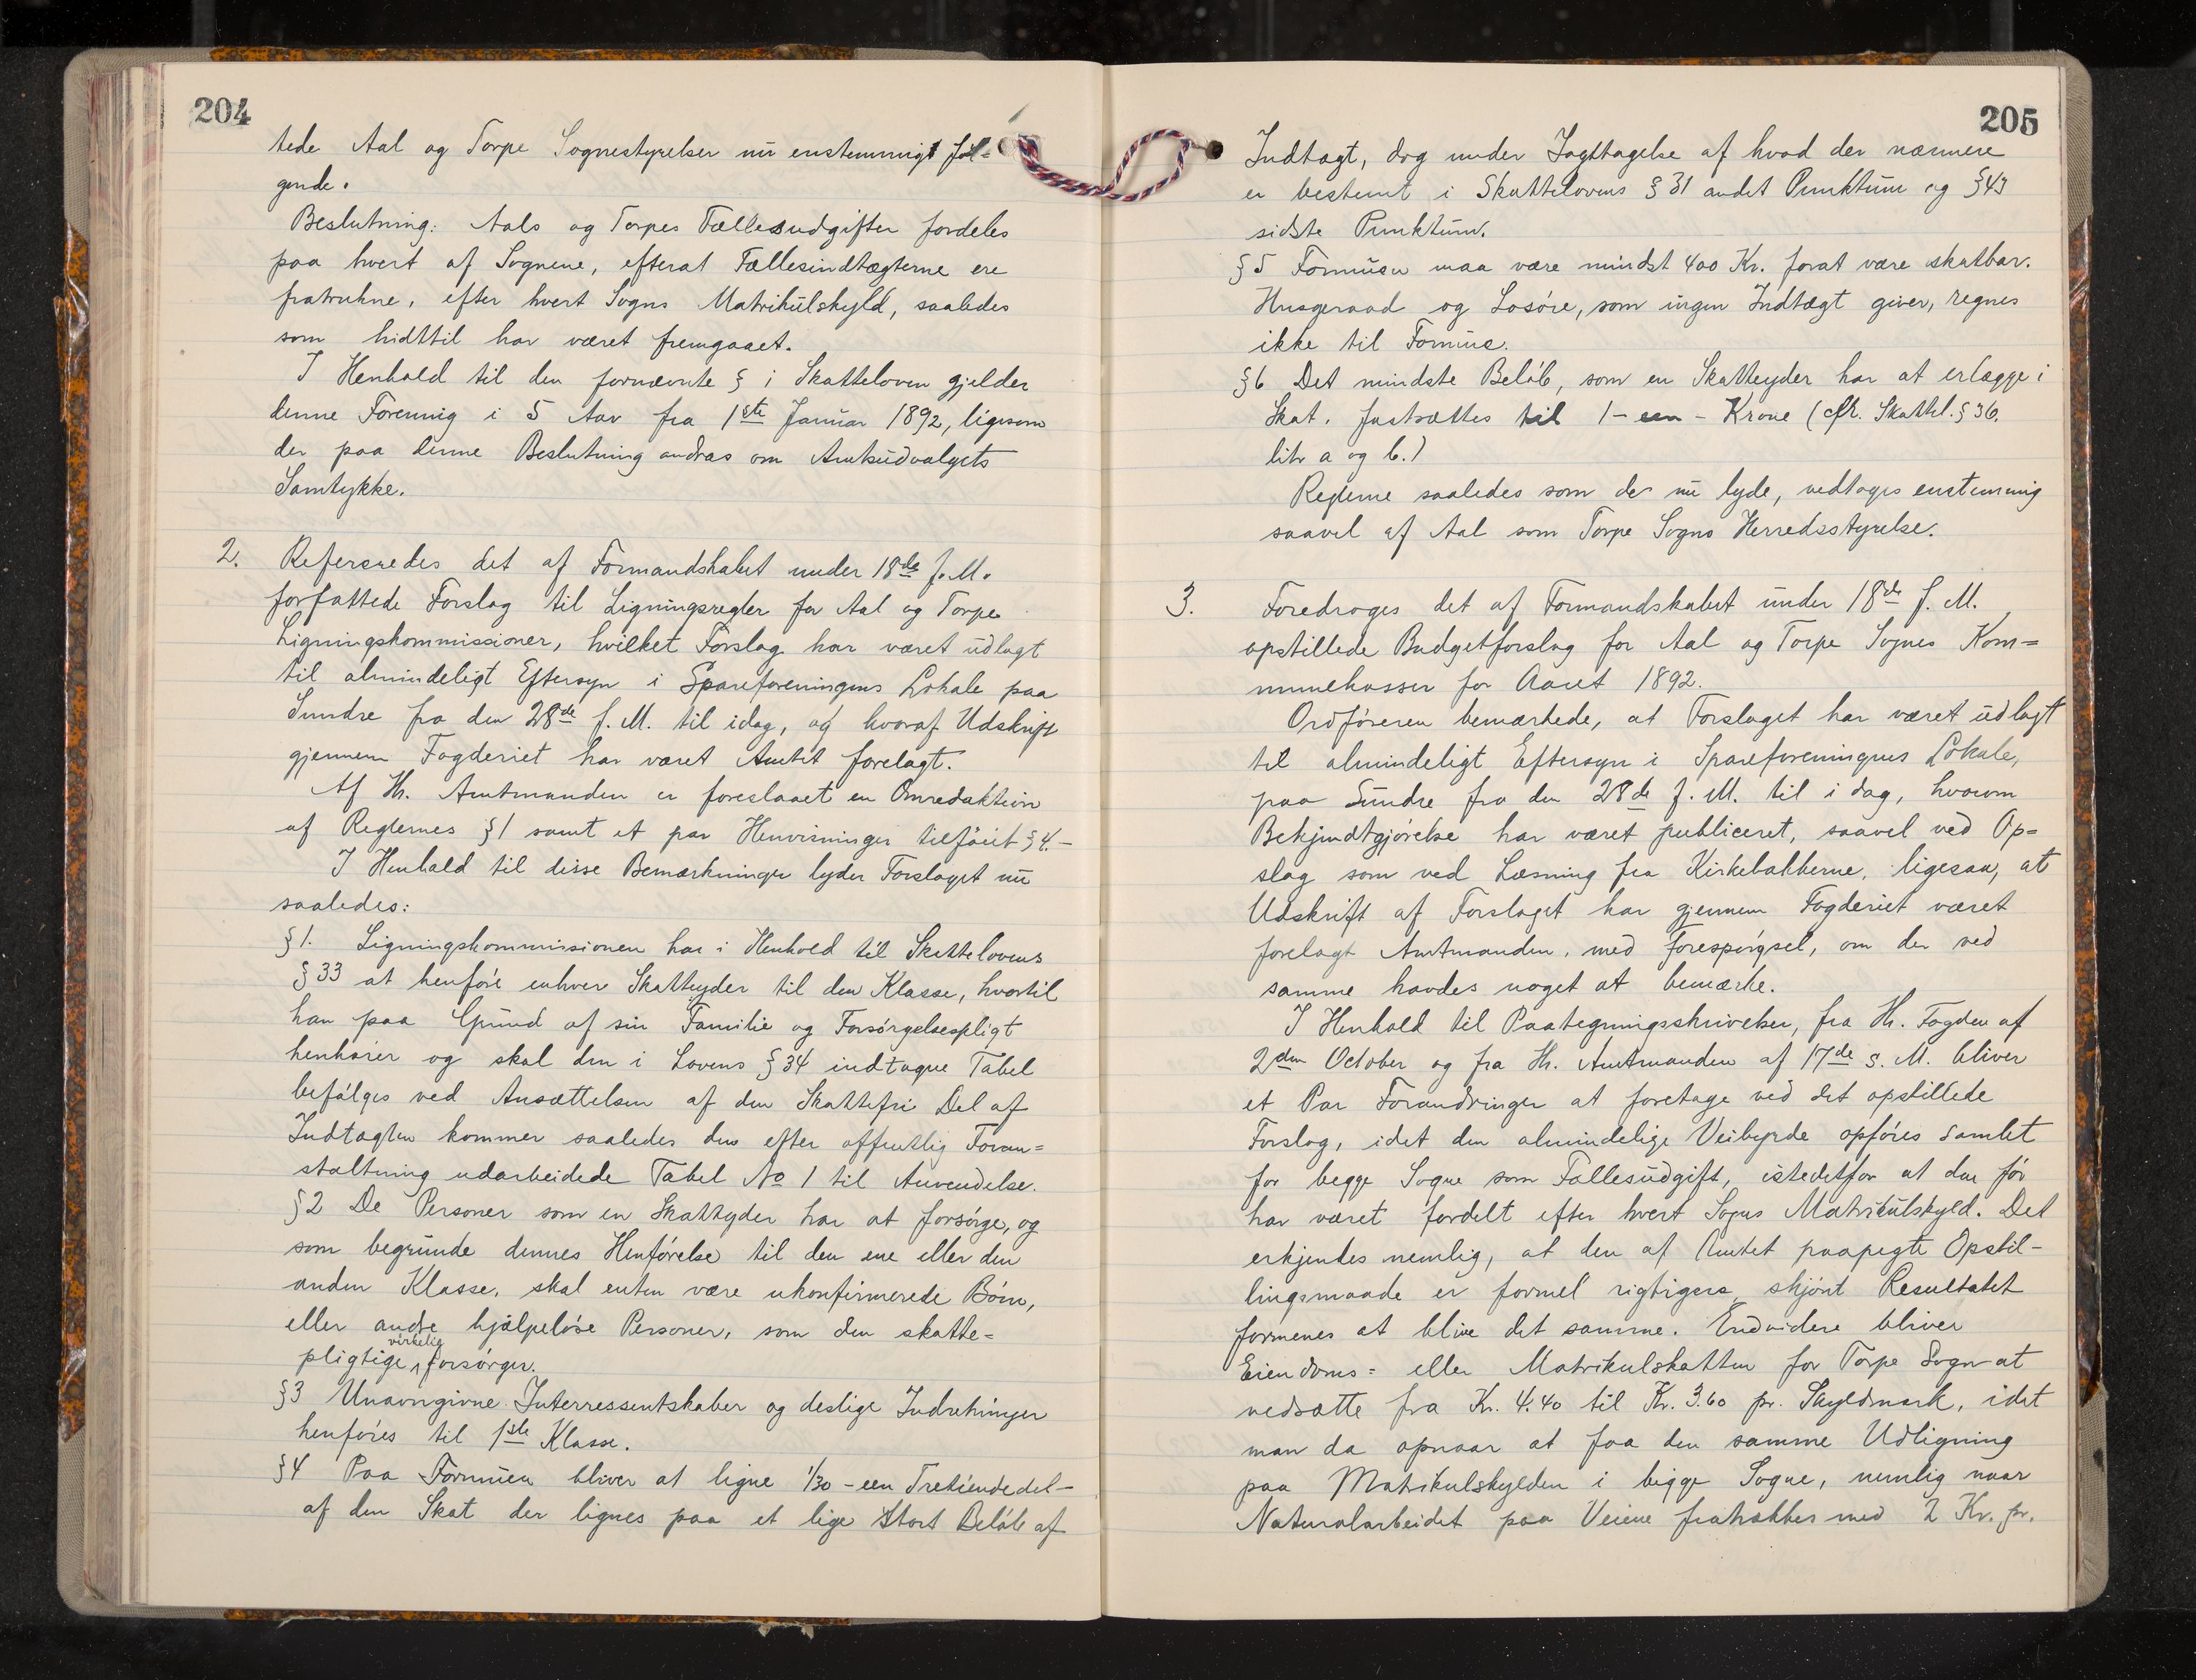 204
tede Aal og Torpe Sognestyrelser nu enstemmigt føl=
gende.
Beslutning: Aals og Torpes Fællesudgifter fordeles
paa hvert af Sognene, efterat Fællesindtægterne ere
fratrukne, efter hvert Sogns Matrikulskyld, saaledes
som hidttil har været fremgaaet.
I Henhold til den fornævnte § i Skatteloven gjelder
denne Forening i 5 Aar fra 1ste Januar 1892, ligesom
der paa denne Beslutning andras om Amtsudvalgets
Samtykke.
2. Refereredes det af Formandskabet under 18de f. M.
forfattede Forslag til Ligningsregler for Aal og Torpe
Ligningskommissioner, hvilket Forslag har været udlagt
til almindeligt Eftersyn i Spareforeningens Lokale paa
Sundre fra den 28de f. M. til idag, og hvoraf Udskrift
gjennem Fogderiet har været Amtet forelagt.
Af Hr. Amtmanden er foreslaaet en Omredaktion
af Reglernes § 1 samt et par Henvisninger tilføiet § 4.-
I Henhold til disse Bemærkninger lyder Forslaget nu
saaledes:
§ 1. Ligningskommissionen har i Henhold til Skattelovens
§ 33 at henføre enhver Skatteyder til den Klasse, hvortil
han paa Grund af sin Familie og Forsørgelsespligt
henhører og skal den i Lovens § 34 indtagne Tabel
befølges ved Ansættelsen af den Skattefri Del af
Indtægten kommer saaledes den efter offentlig Foran=
staltning udarbeidede Tabel No 1 til Anvendelse.
§ 2 De Personer som en Skatteyder har at forsørge, og
som begrunde dennes Henførelse til den ene eller den
anden Klasse, skal enten være ukonfirmerede Børn,
eller andre hjælpeløse Personer, som den skatte=
pligtige virkelig forsørger.
§ 3 Unavngivne Interressentskaber og deslige Indretninger
henføres til 1ste Klasse.
§ 4 Paa Formuen bliver at ligne 1/30 - een Tretiendedel -
af den Skat der lignes paa et lige stort Beløb af
205
Indtægt, dog under Iagttagelse af hvad der nærmere
er bestemt i Skattelovens § 31 andet Punktum og § 43
sidste Punktum.
§ 5 Formuen maa være mindst 400 Kr. forat være skatbar.
Husgeraad og Løsøre, som ingen Indtægt giver, regnes
ikke til Formue.
§ 6 Det mindste Beløb, som en Skatteyder har at erlægge i
Skat, fastsættes til 1 - een - Krone (cfr. Skattel. § 36.
litr a og b.)
Reglerne saaledes som de nu lyde, vedtoges enstemmig
saavel af Aal som Torpe Sogns Herredsstyrelse.
3. Foredroges det af Formandskabet under 18de f. M.
opstillede Budgetforslag for Aal og Torpe Sognes Kom=
munekasser for Aaret 1892.
Ordføreren bemærkede, at Forslaget har været udlagt
til almindeligt Eftersyn i Spareforeningens Lokale,
paa Sundre fra den 28de f. M. til i dag, hvorom
Bekjendtgjørelse har været publiceret, saavel ved Op=
slag som ved Læsning fra Kirkebakkerne, ligesaa, at
Udskrift af Forslaget har gjennem Fogderiet været
forelagt Amtmanden, med Forespørgsel, om der ved
samme havdes noget at bemærke.
I Henhold til Paategningsskrivelser, fra Hr. Fogden af
2den October og fra Hr. Amtmanden af 17de s. M. bliver
et Par Forandringer at foretage ved det opstillede
Forslag, idet den almindelige Veibyrde opføres samlet
for begge Sogne som Fællesudgift, istedetfor at den før
har været fordelt efter hvert Sogns Matrikulskyld. Det
erkjendes nemlig, at den af Amtet paapegte Opstil-
lingsmaade er formel rigtigere, skjønt Resultatet
formenes at blive det samme. Endvidere bliver
Eiendoms= eller Matrikulskatten for Torpe Sogn at
nedsætte fra Kr. 4.40 til Kr. 3.60 pr. Skyldmark, idet
man da opnaar at faa den samme Udligning
paa Matrikulskylden i begge Sogne, nemlig naar
Naturalarbeidet paa Veiene fratrækkes med 2 Kr. pr.